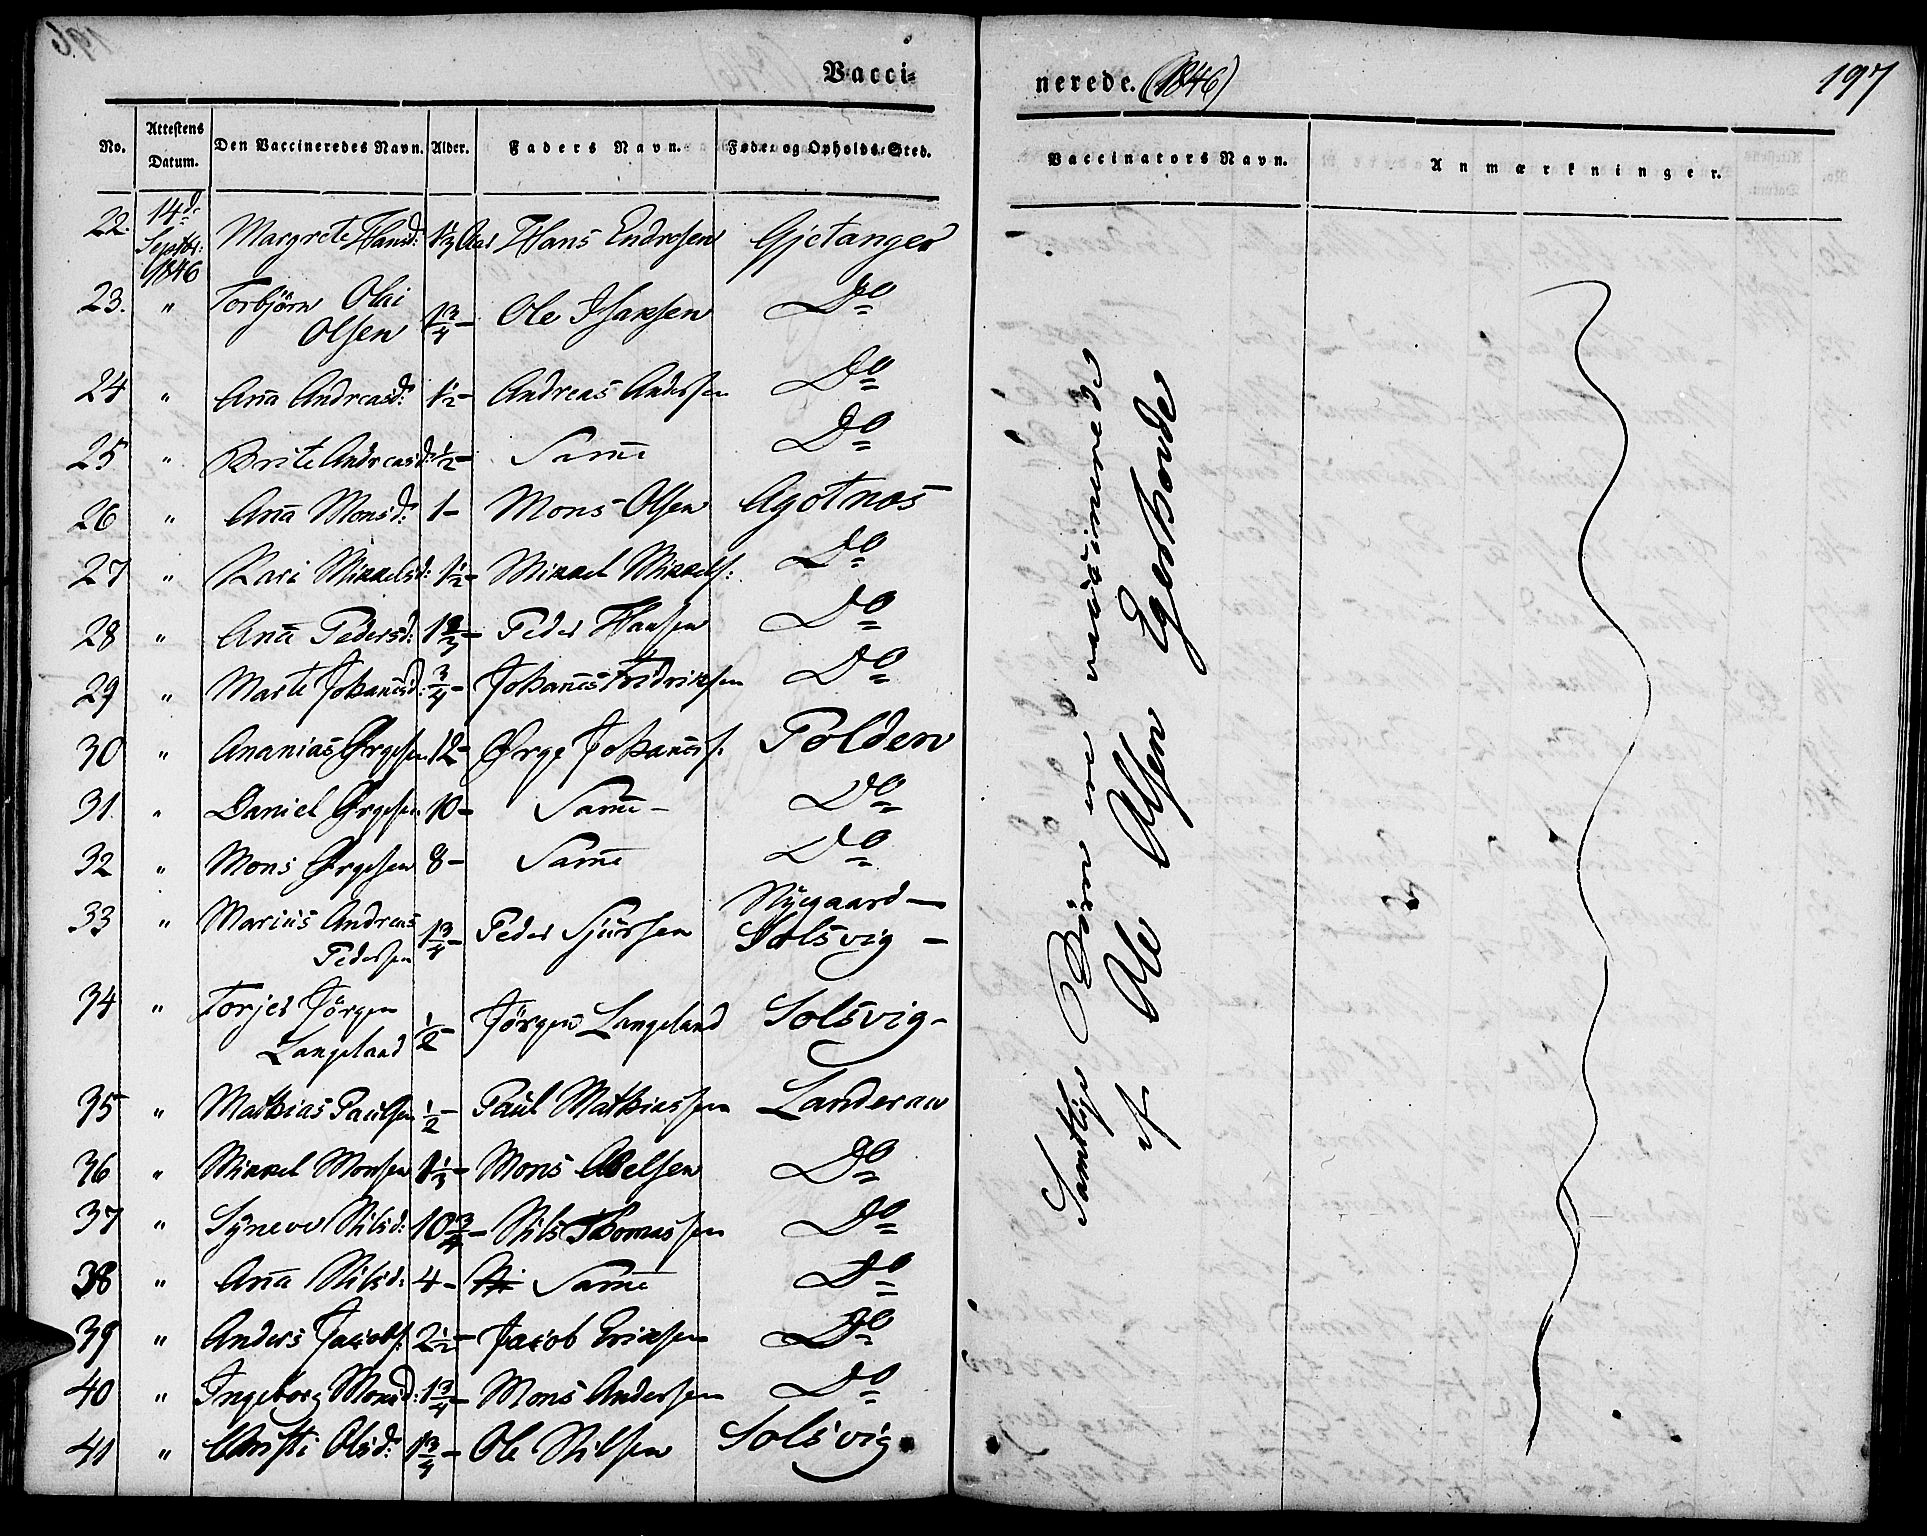 Vacci-
nerede. (1846)
197
No. Attestens Datum. Den Vaccineredes Navn. Alder. Faders Navn. Føde- og Opholds-Sted.
Vaccinators Navn. Anmærkninger.
22. 14d. Septbr. 1846 Margrete Hansd: 1½ Aar Hans Endresen Gjetanger
23. " Torbjörn Olai Olsen 1¾ - Ole Isaksen Do
24 " Aña Andreasd: 1½ - Andreas Andersen Do
25 " Brite Andreasd: ½ - Sam̄e Do
26 " Aña Monsd: 1 - Mons Olsen Agotnæs
27 " Kari Mikkelsd: 1½ - Mikkel Mikkels: Do
28 " Aña Pedersd: 1⅔ - Peder Hansen Do
29 " Marte Johañesd: ¾ - Johañes Fredriksen Do
30 " Ananias Ørgesen 12 - Ørge Johañess: Polden
31. " Daniel Ørgesen 10 - Sam̄e - Do
32 " Mons Ørgesen 8 - Sam̄e Do
33 " Marius Andreas Pedersen 1¾ - Peder Sjursen Nygaard - Solsvig -
34 " Torjer Jörgen Langeland ½ - Jörgen Langeland Solsvig -
35 " Mathias Paulsen ½ - Paul Mathiassen Landeraw
36 " Mikkel Monsen 1⅓ - Mons Abelsen Do
37 " Synneve Nilsd: 10¾ - Nils Thomassen Do
38 " Aña Nilsd: 4 - Sam̄e Do
39 " Anders Jacobs: 2½ - Jacob Eriksen Do
40 " Ingeborg Monsd: 1¾ - Mons Andersen Do
41 " Christi Olsd: 1¾ - Ole Nilsen Solsvig
Samtlige Börn ere vaccinerede
af Ole Olsen Egerhovde